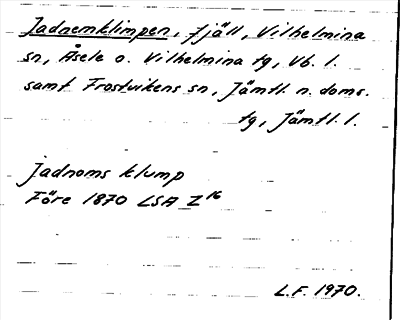 Jadnemklimpen, fjäll, Vilhelmina
sn, Åsele o. Vilhelmina tg, Vb. l.
samt Frostvikens sn, Jämtl. n. doms.
tg, Jämtl. l.
Jadnoms klump
Före 1870 LSA Z 16
L.F. 1970.